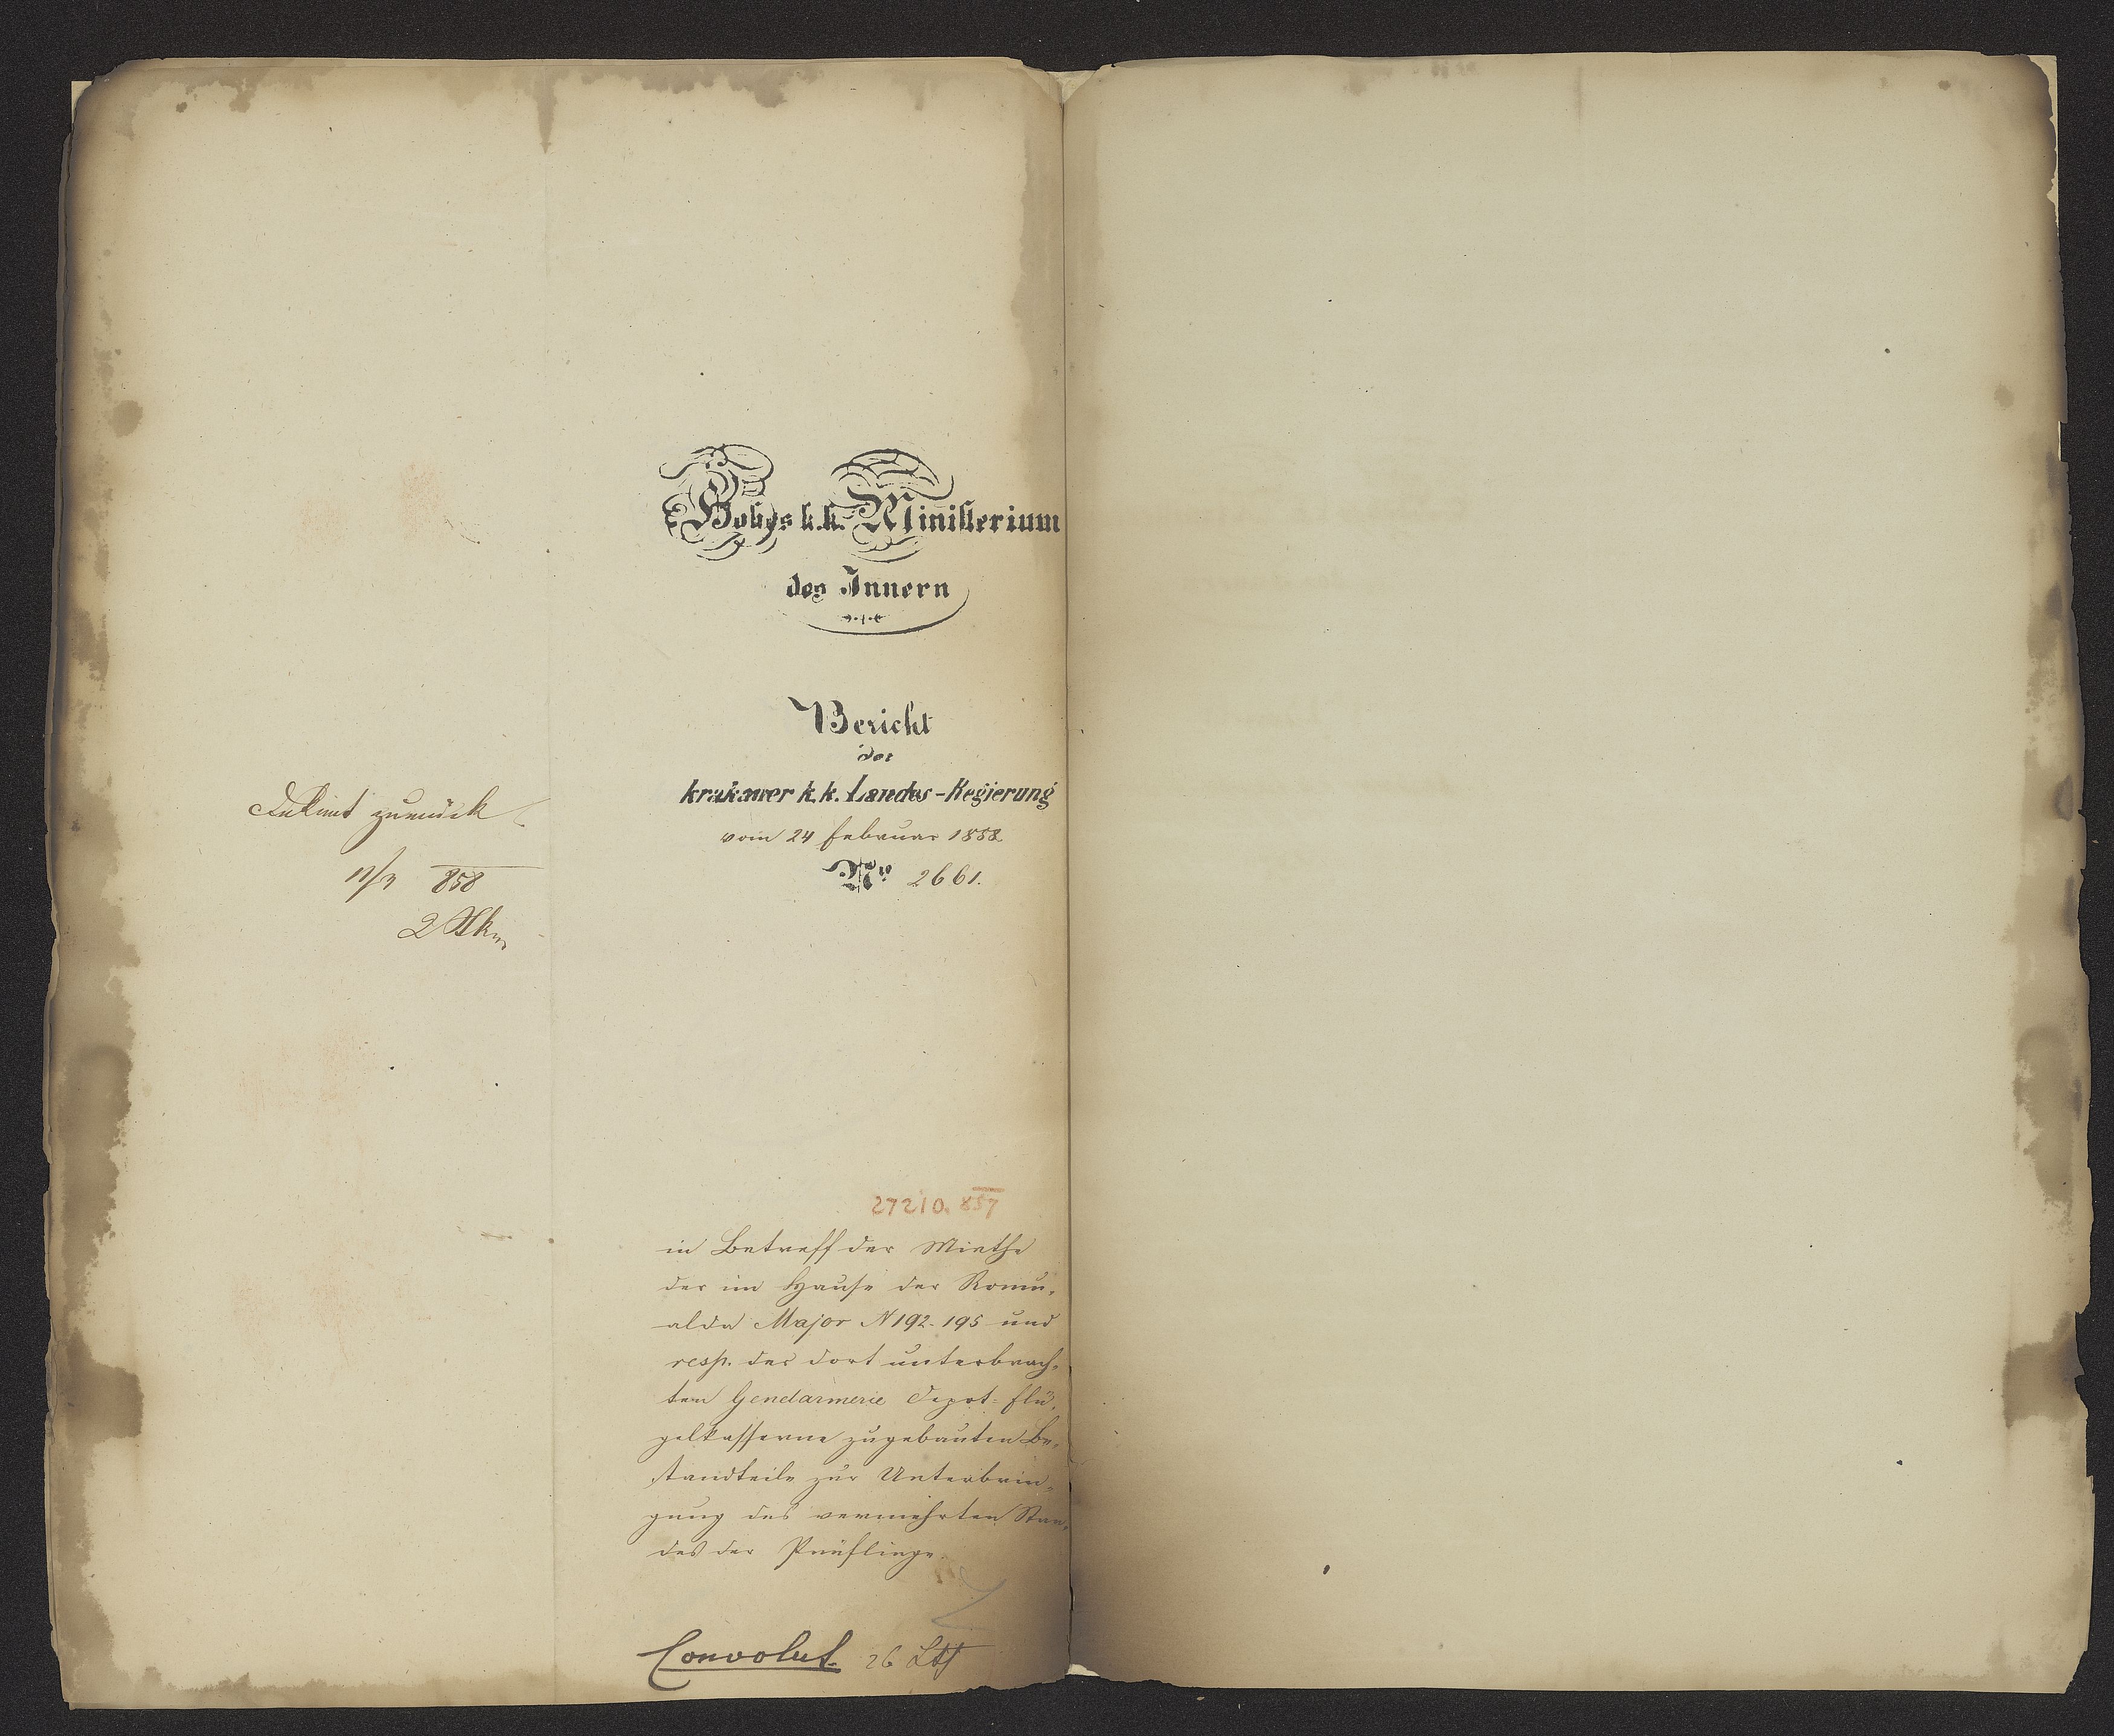 zurück
11/3 858
Hohes k.k. Ministerium
des Innern
Bericht
der
krakauer k.k. Landes-Regierung
vom 24 Februar 1858
Nro 2661.
27210. 857
in Betreff der Miethe
der im Hause der Romu-
alda Major N 192-195 und
resp. der dort unterbrach-
ten Gendarmerie Depot-Flü-
gelkasserne zugebauten Be-
standteile zur Unterbrin-
gung des vermehrten Stan-
des der Prüflinge.
Convolut 26